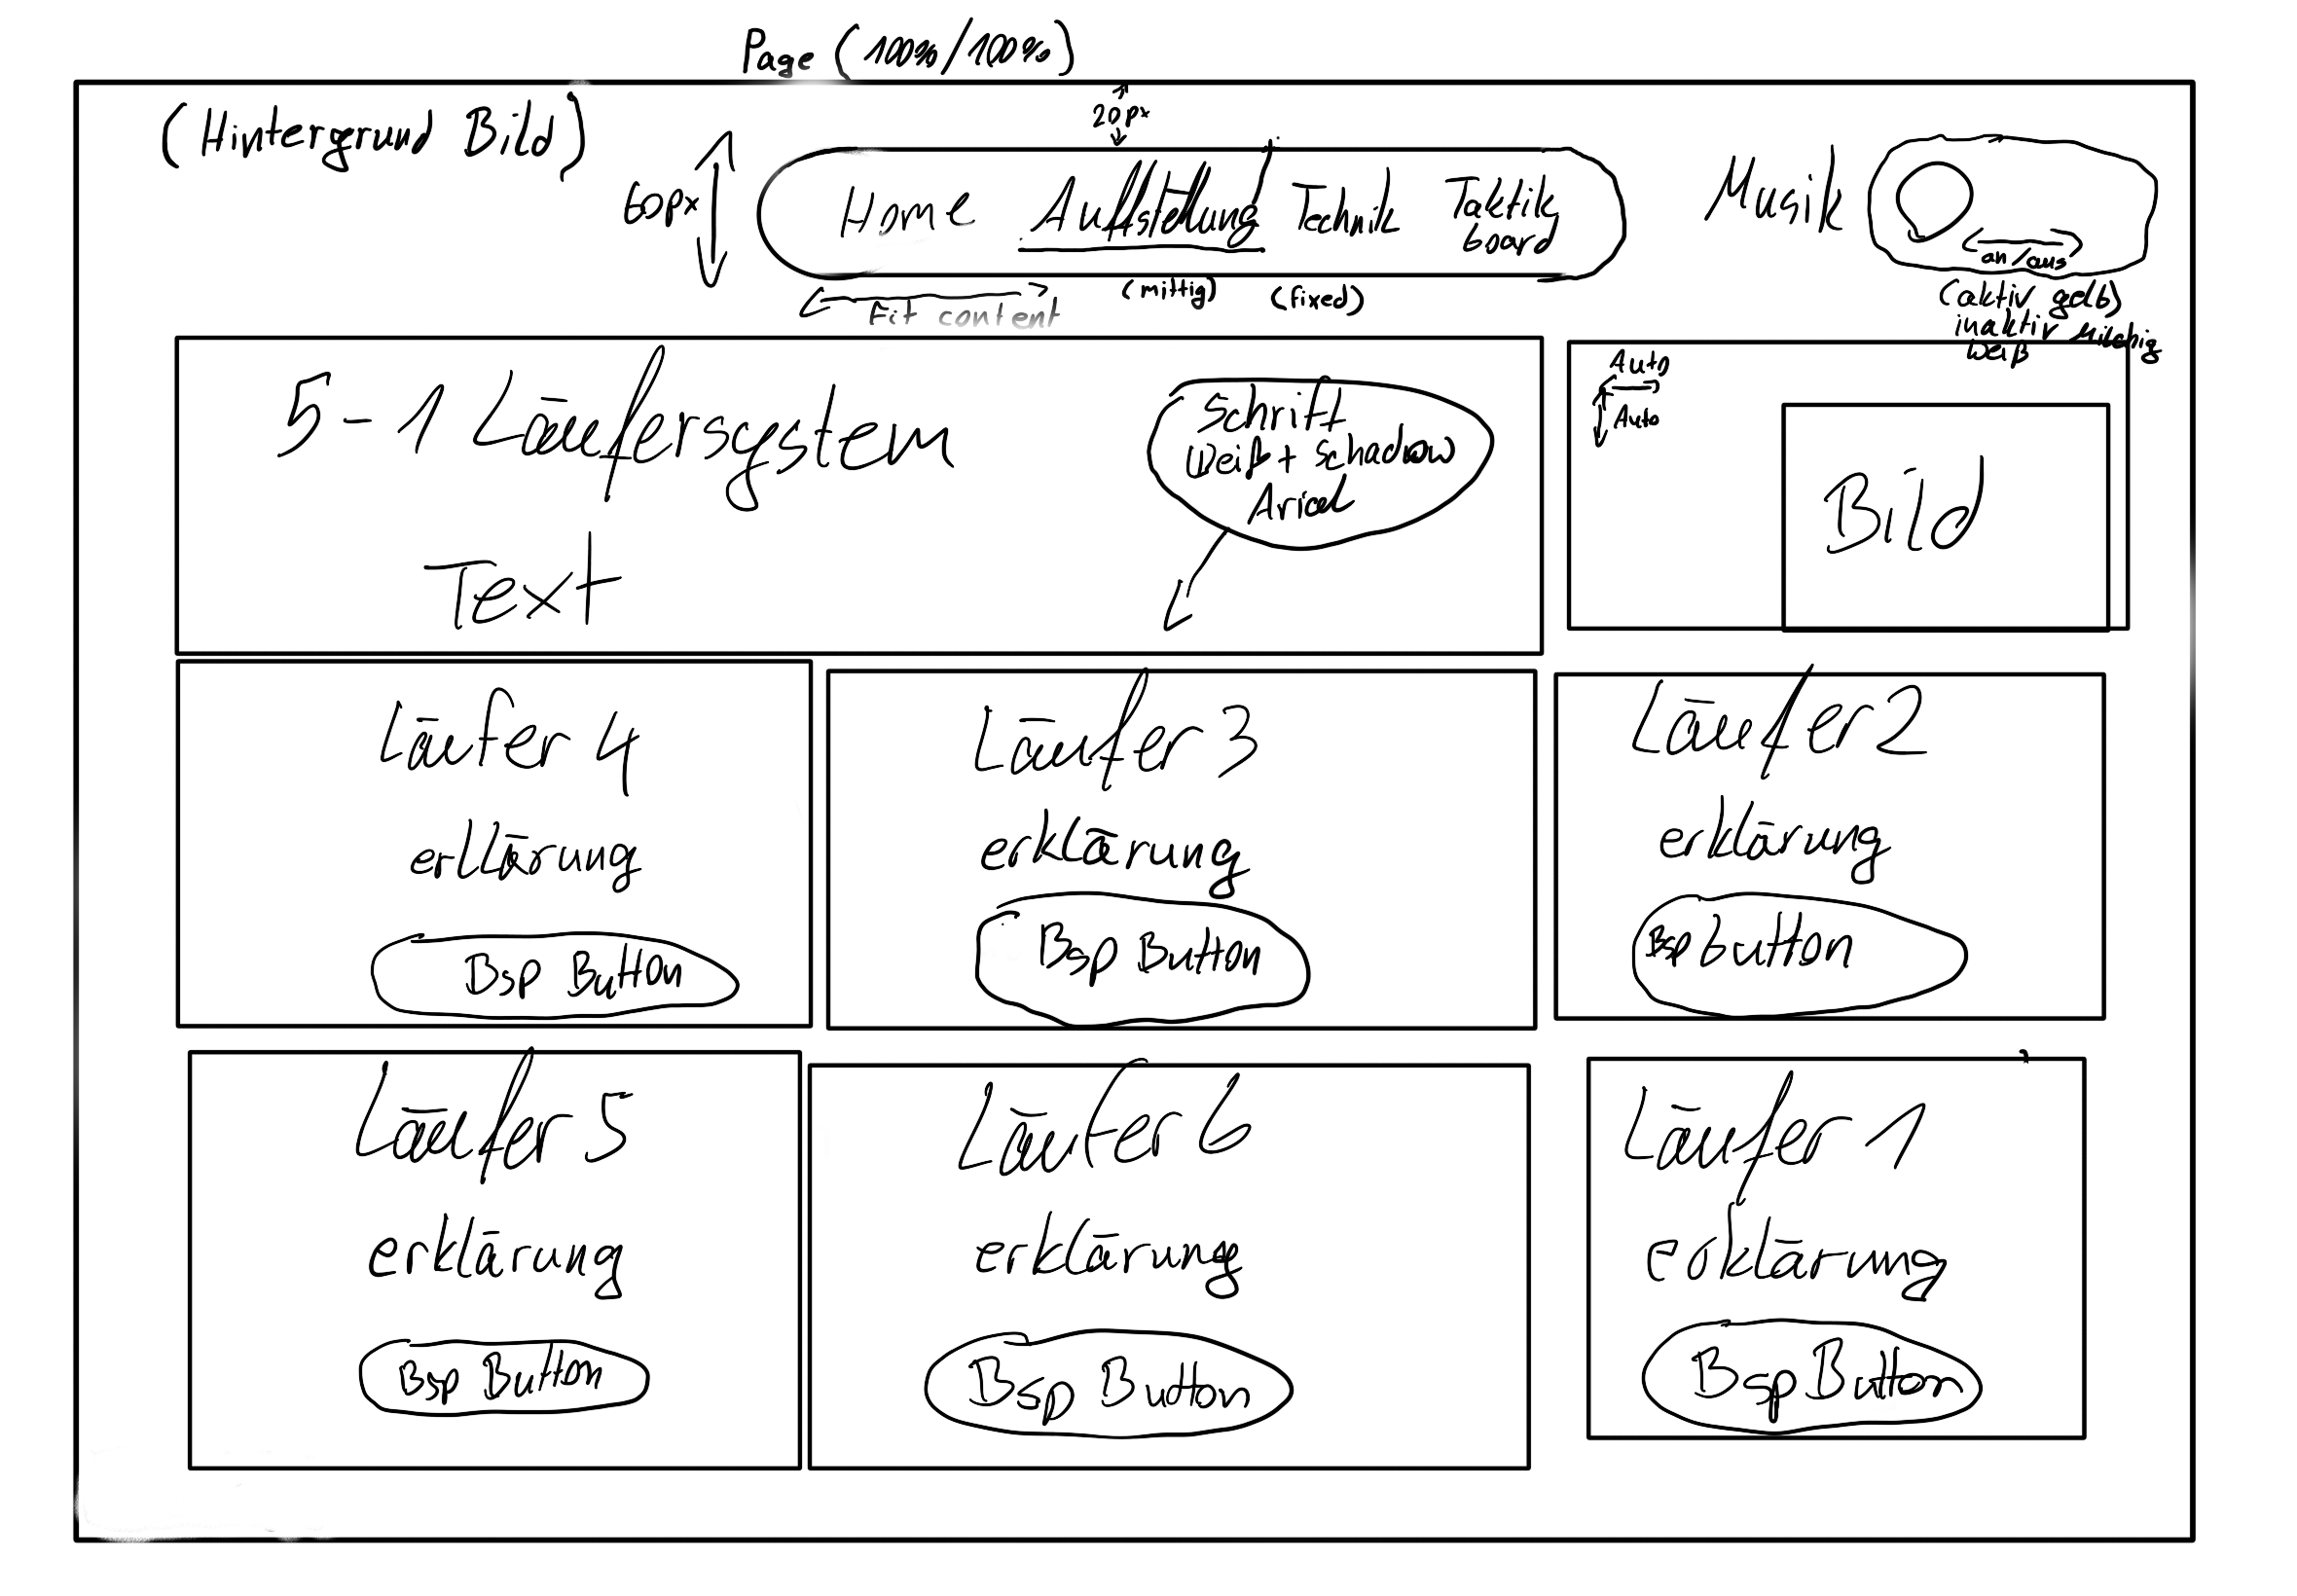 Page (100%/100%)
(Hintergrund Bild)
20px
60px
Home Aufstellung Technik Taktik board
Musik
an/aus
(mittig) (fixed)
Fit content
(aktiv gelb)
inaktiv Milchig
Weiß
5-1 Läufersystem
Text
Schrift
Weiß + Schadow
Arial
Auto
Auto
Bild
Läufer 4
erklärung
Bsp Button
Läufer 3
erklärung
Bsp Button
Läufer 2
erklärung
Bsp Button
Läufer 5
erklärung
Bsp Button
Läufer 6
erklärung
Bsp Button
Läufer 1
erklärung
Bsp Button